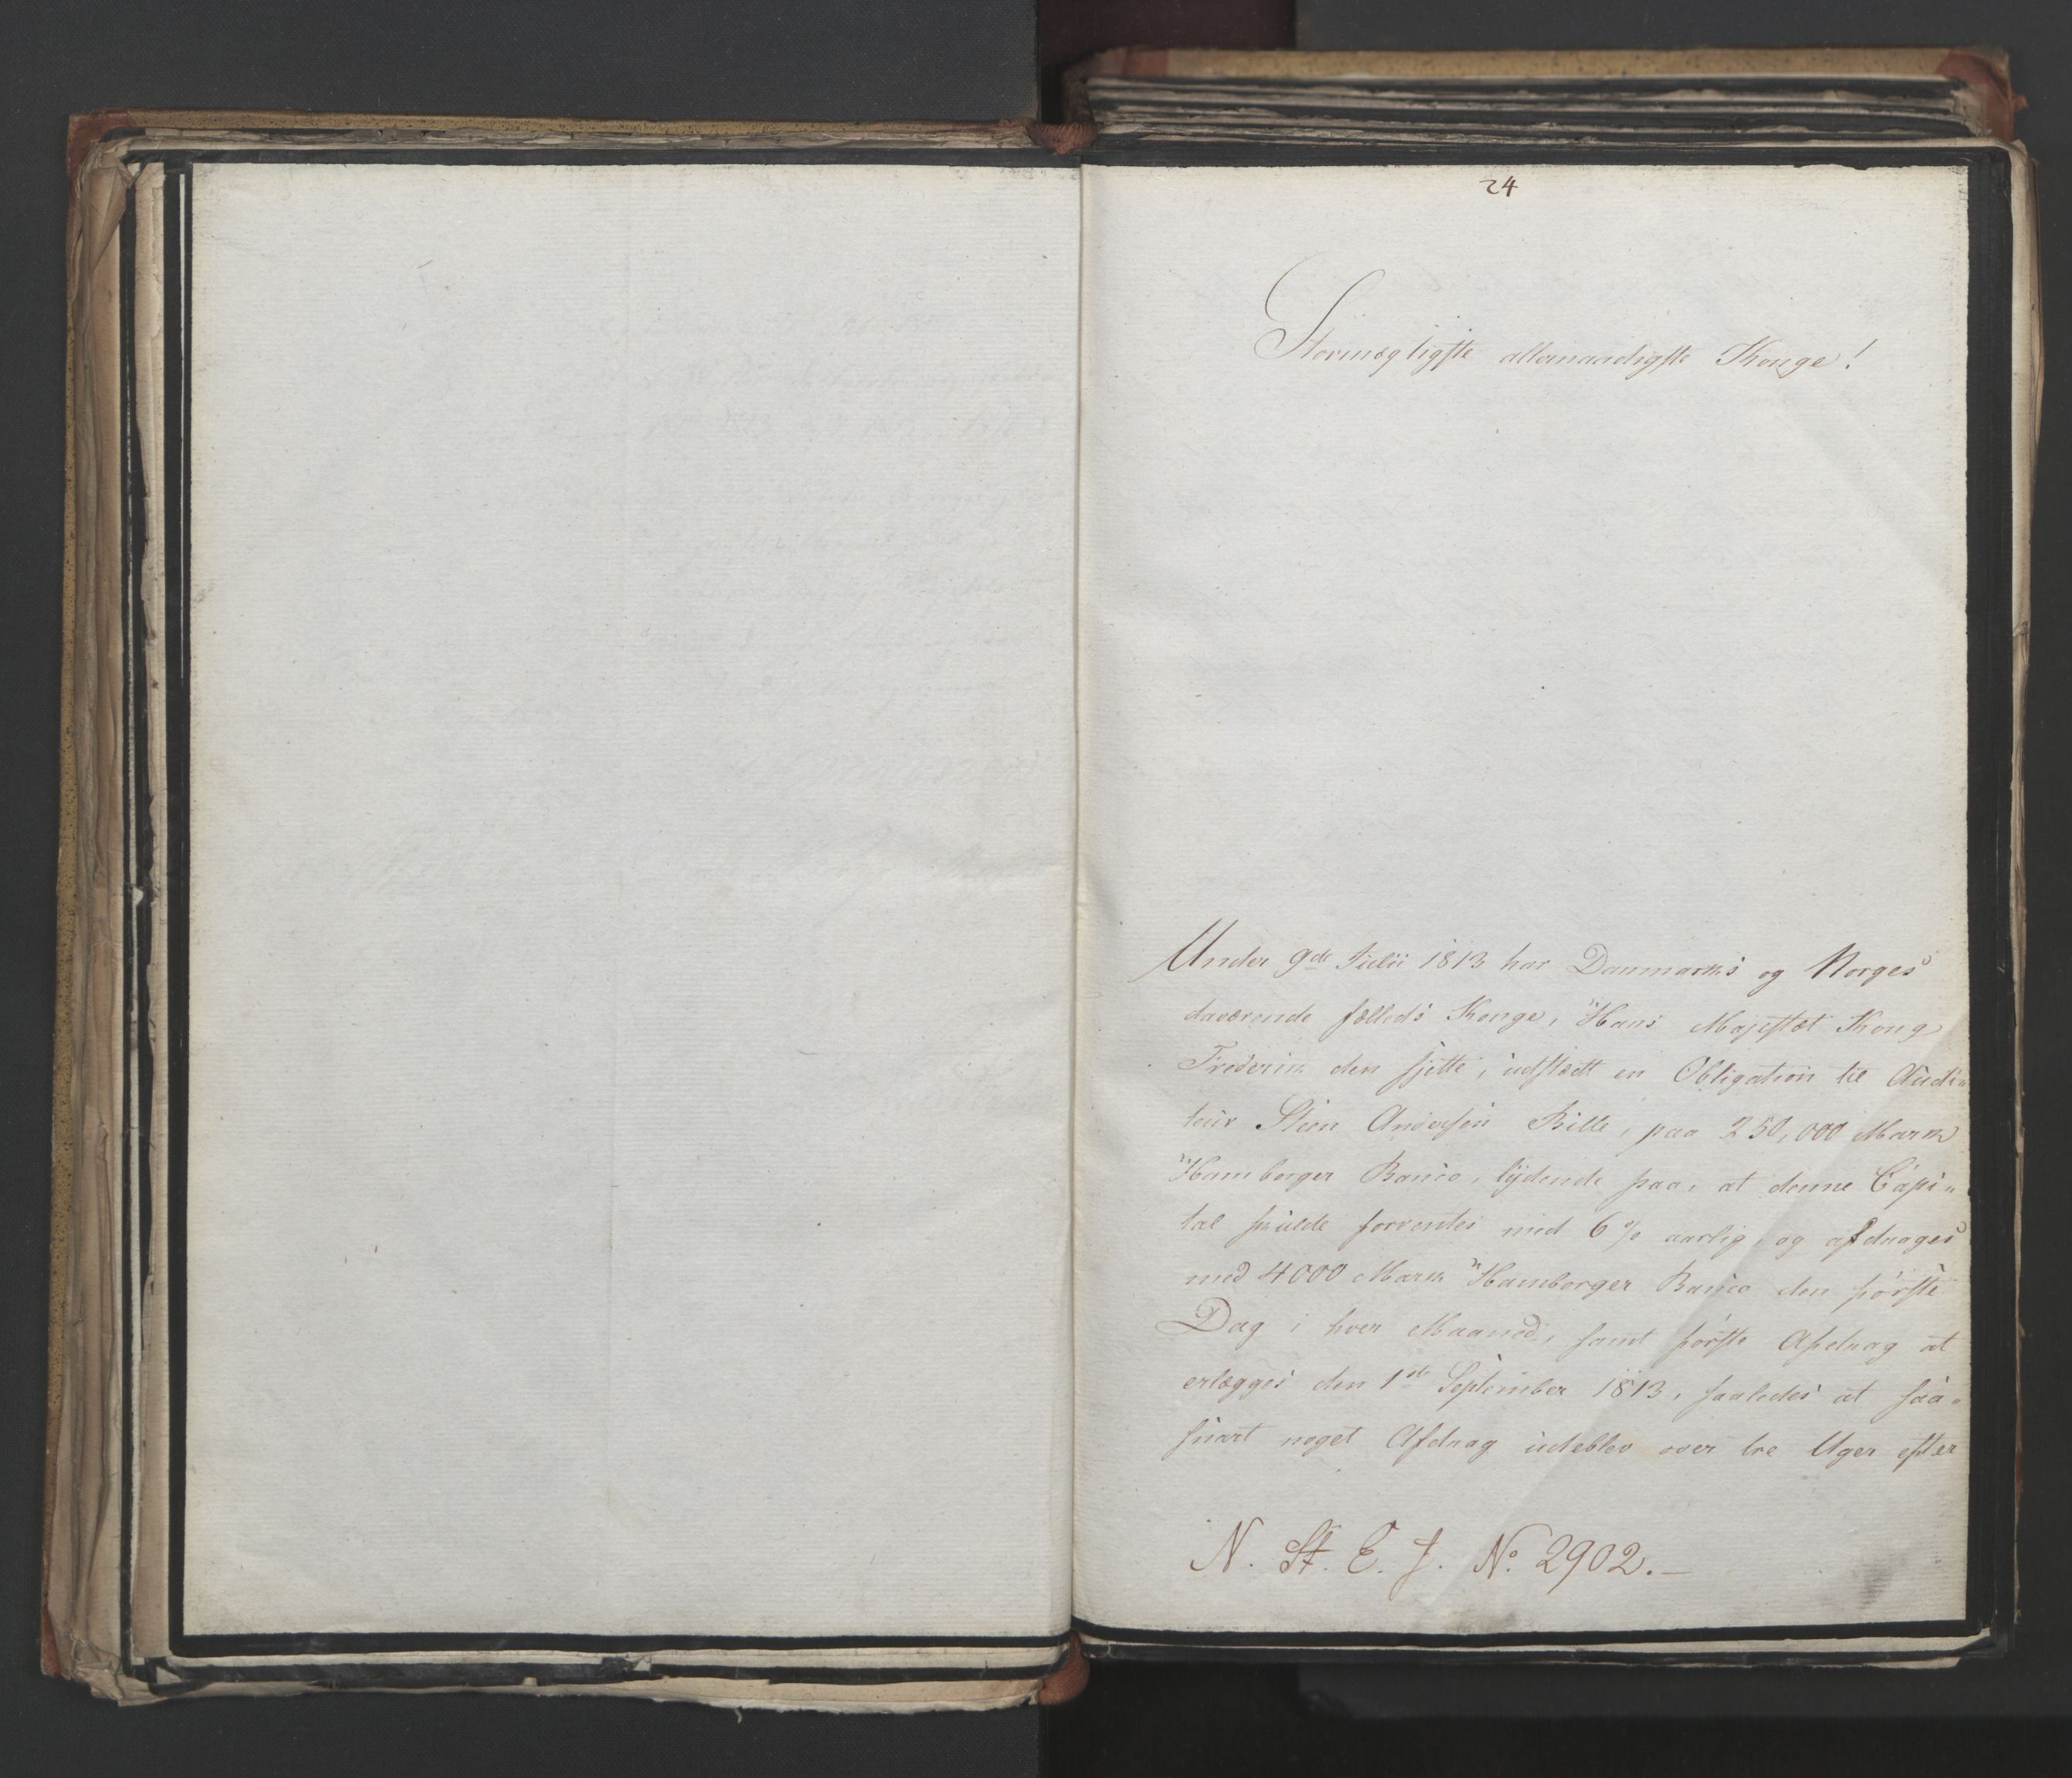 24
Stormægtigste allernaadigste Konge!
Under 9de Julii 1813 har Danmarks og Norges
daværende fælleds Konge, Hans Majestæt Kong
Frederik den sjette, udstædt en Obligation til Audi-
teur Steen Andersen Bille, paa 250,000 Mark
Hamborger Banco, lydende paa, at denne Capi-
tal skulde forrentes med 6 % aarlig og afdrages
med 4000 Mark Hamborger Banco den første
Dag i hver Maaned, samt første Afdrag at
erlægges den 1ste September 1813, saaledes at saa-
snart noget Afdrag udeblev over tre Uger efter
N. St. E. J. No. 2902.-